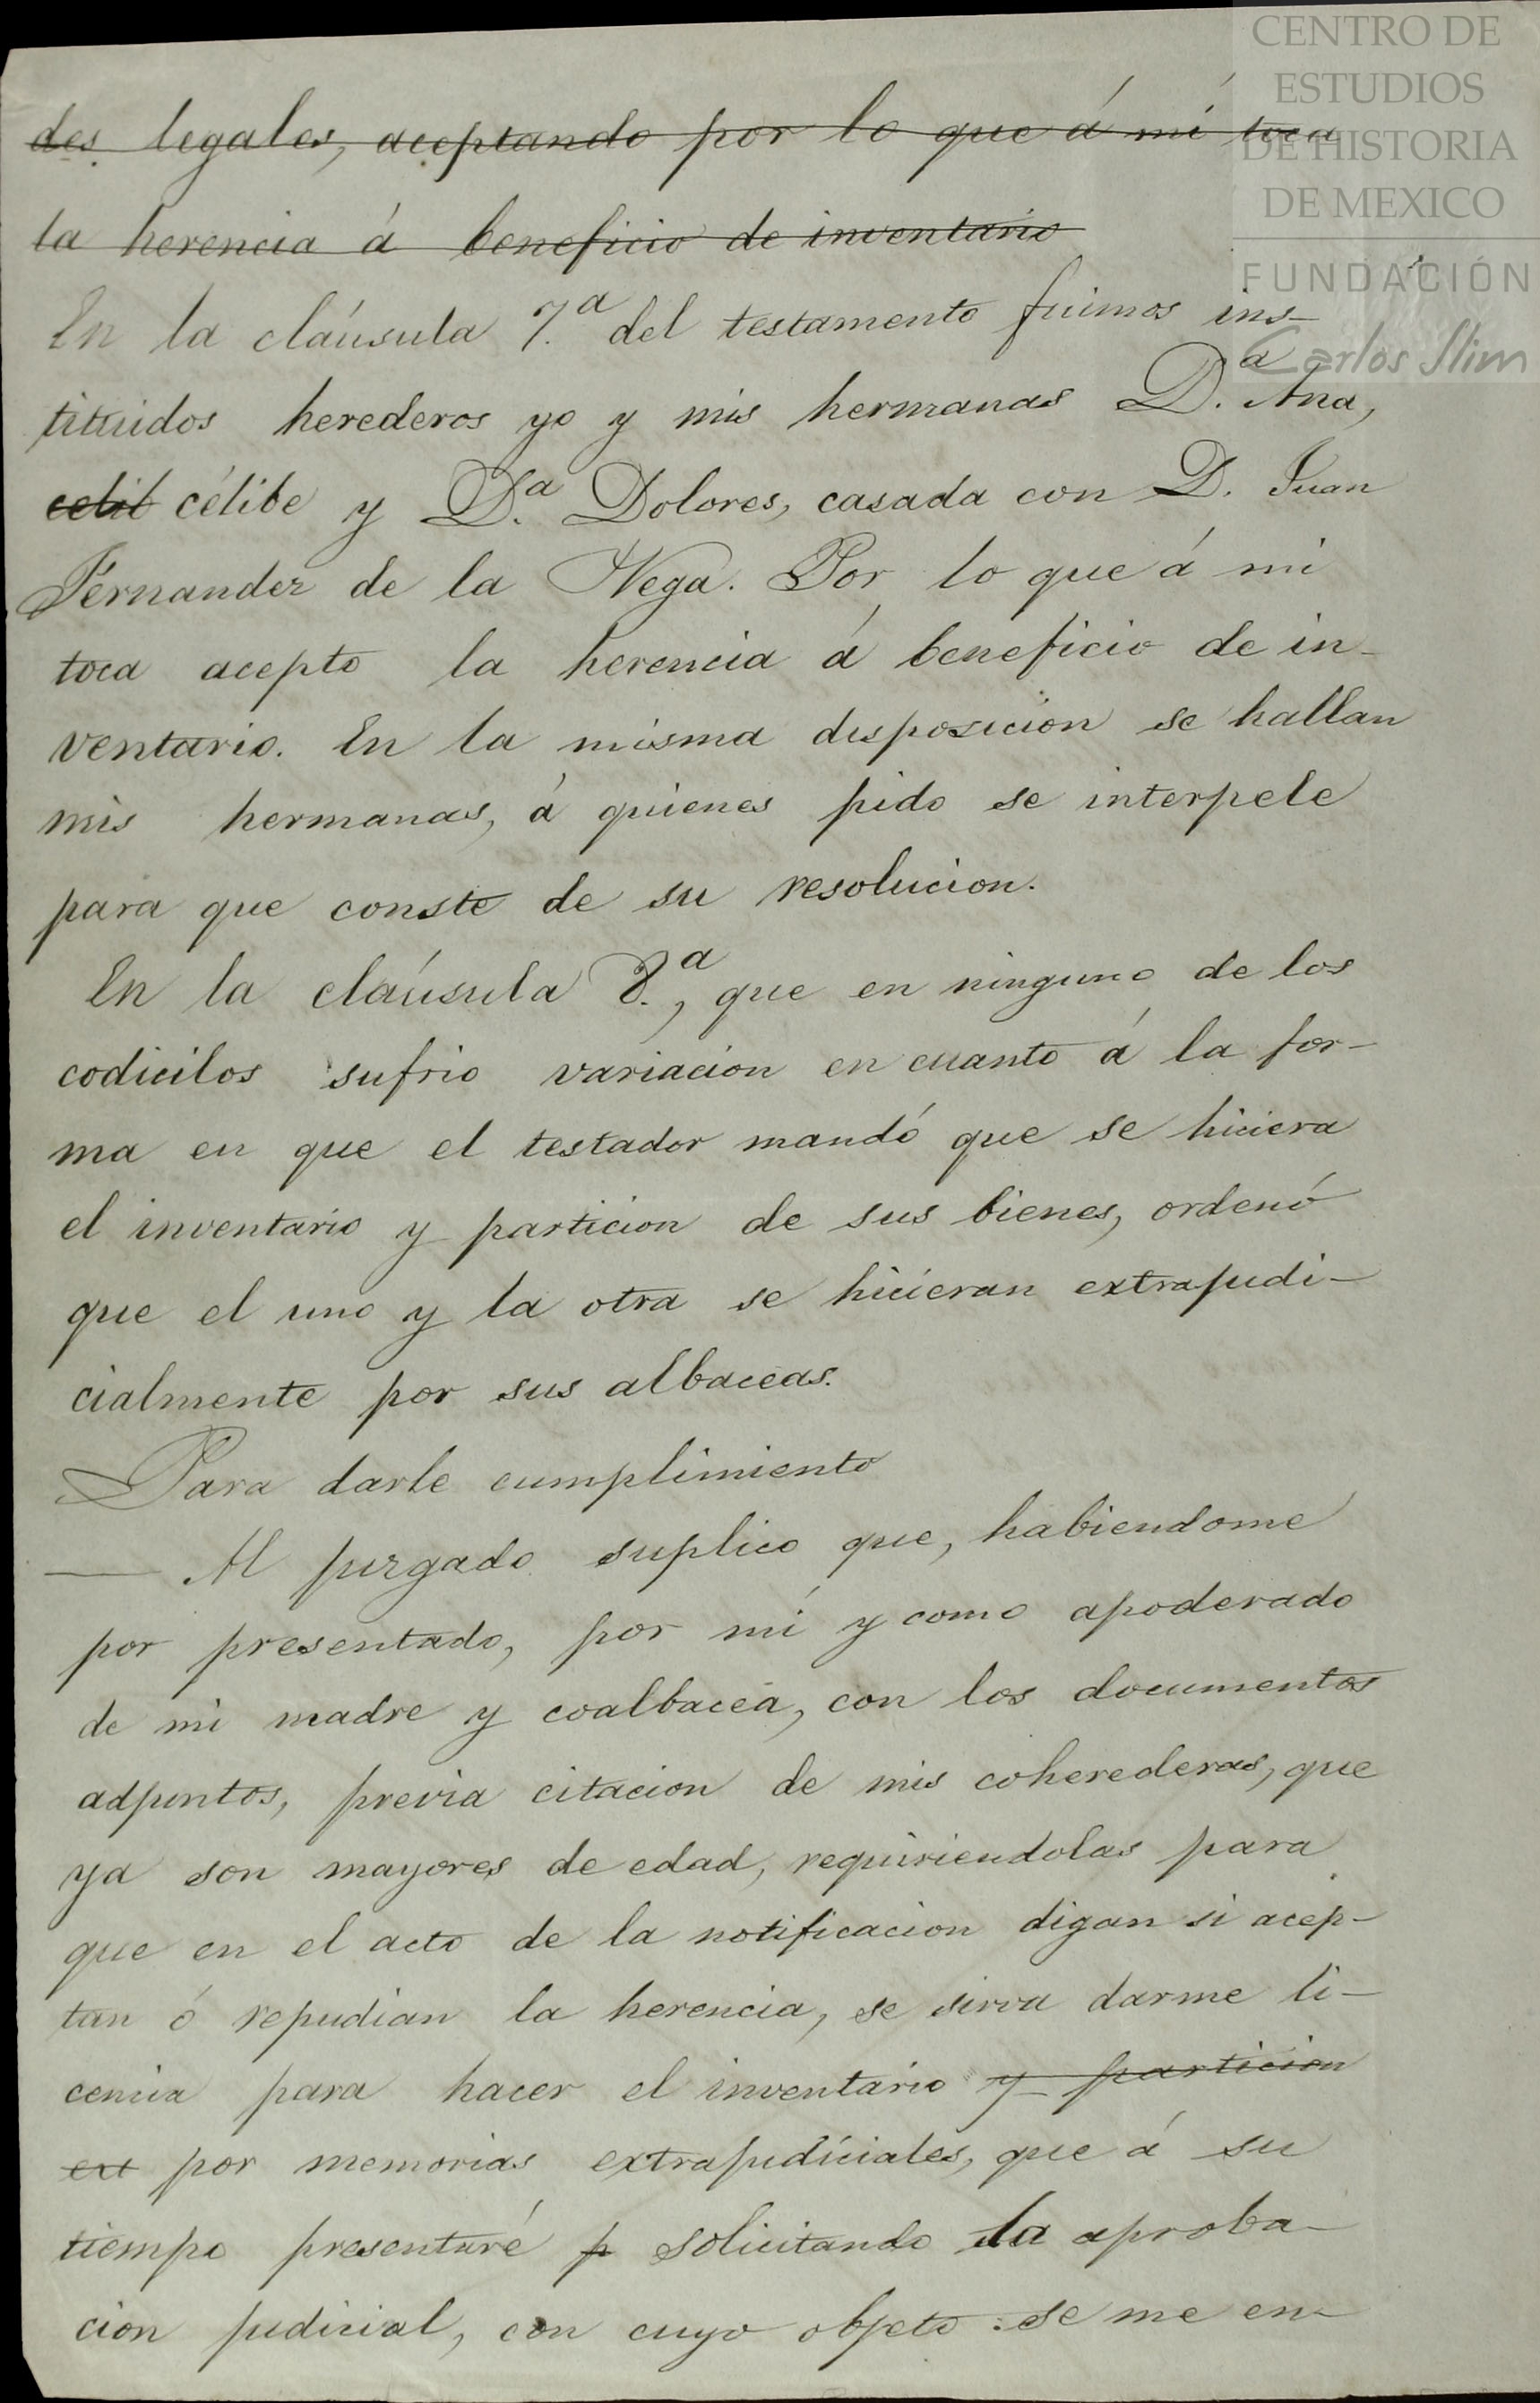 CENTRO DE
ESTUDIOS
DE HISTORIA
DE MEXICO
FUNDACIÓN
Carlos Slim
des legales, aceptando por lo que á mí toca
la herencia á beneficio de inventario
En la cláusula 7.ª del testamento fuimos ins-
tituidos herederos yo y mis hermanas D.ª Ana,
celib célibe y D.ª Dolores, casada con D. Juan
Fernandez de la Vega. Por lo que á mi
toca acepto la herencia á beneficio de in-
ventario. En la misma disposicion se hallan
mis hermanas, á quienes pido se interpele
para que conste de su resolucion.
En la cláusula 8.ª, que en ninguno de los
codicilos sufrio variacion en cuanto á la for-
ma en que el testador mandó que se hiciera
el inventario y particion de sus bienes, ordenó
que el uno y la otra se hicieran extrajudi-
cialmente por sus albaceas.
Para darle cumplimiento
— Al juzgado suplico que, habiendome
por presentado, por mí y como apoderado
de mi madre y coalbacea, con los documentos
adjuntos, previa citacion de mis coherederas, que
ya son mayores de edad, requiriendolas para
que en el acto de la notificacion digan si acep-
tan ó repudian la herencia, se sirva darme li-
cencia para hacer el inventario y particion
ext por memorias extrajudiciales, que á su
tiempo presentaré p solicitando la aproba-
cion judicial, con cuyo objeto se me en-